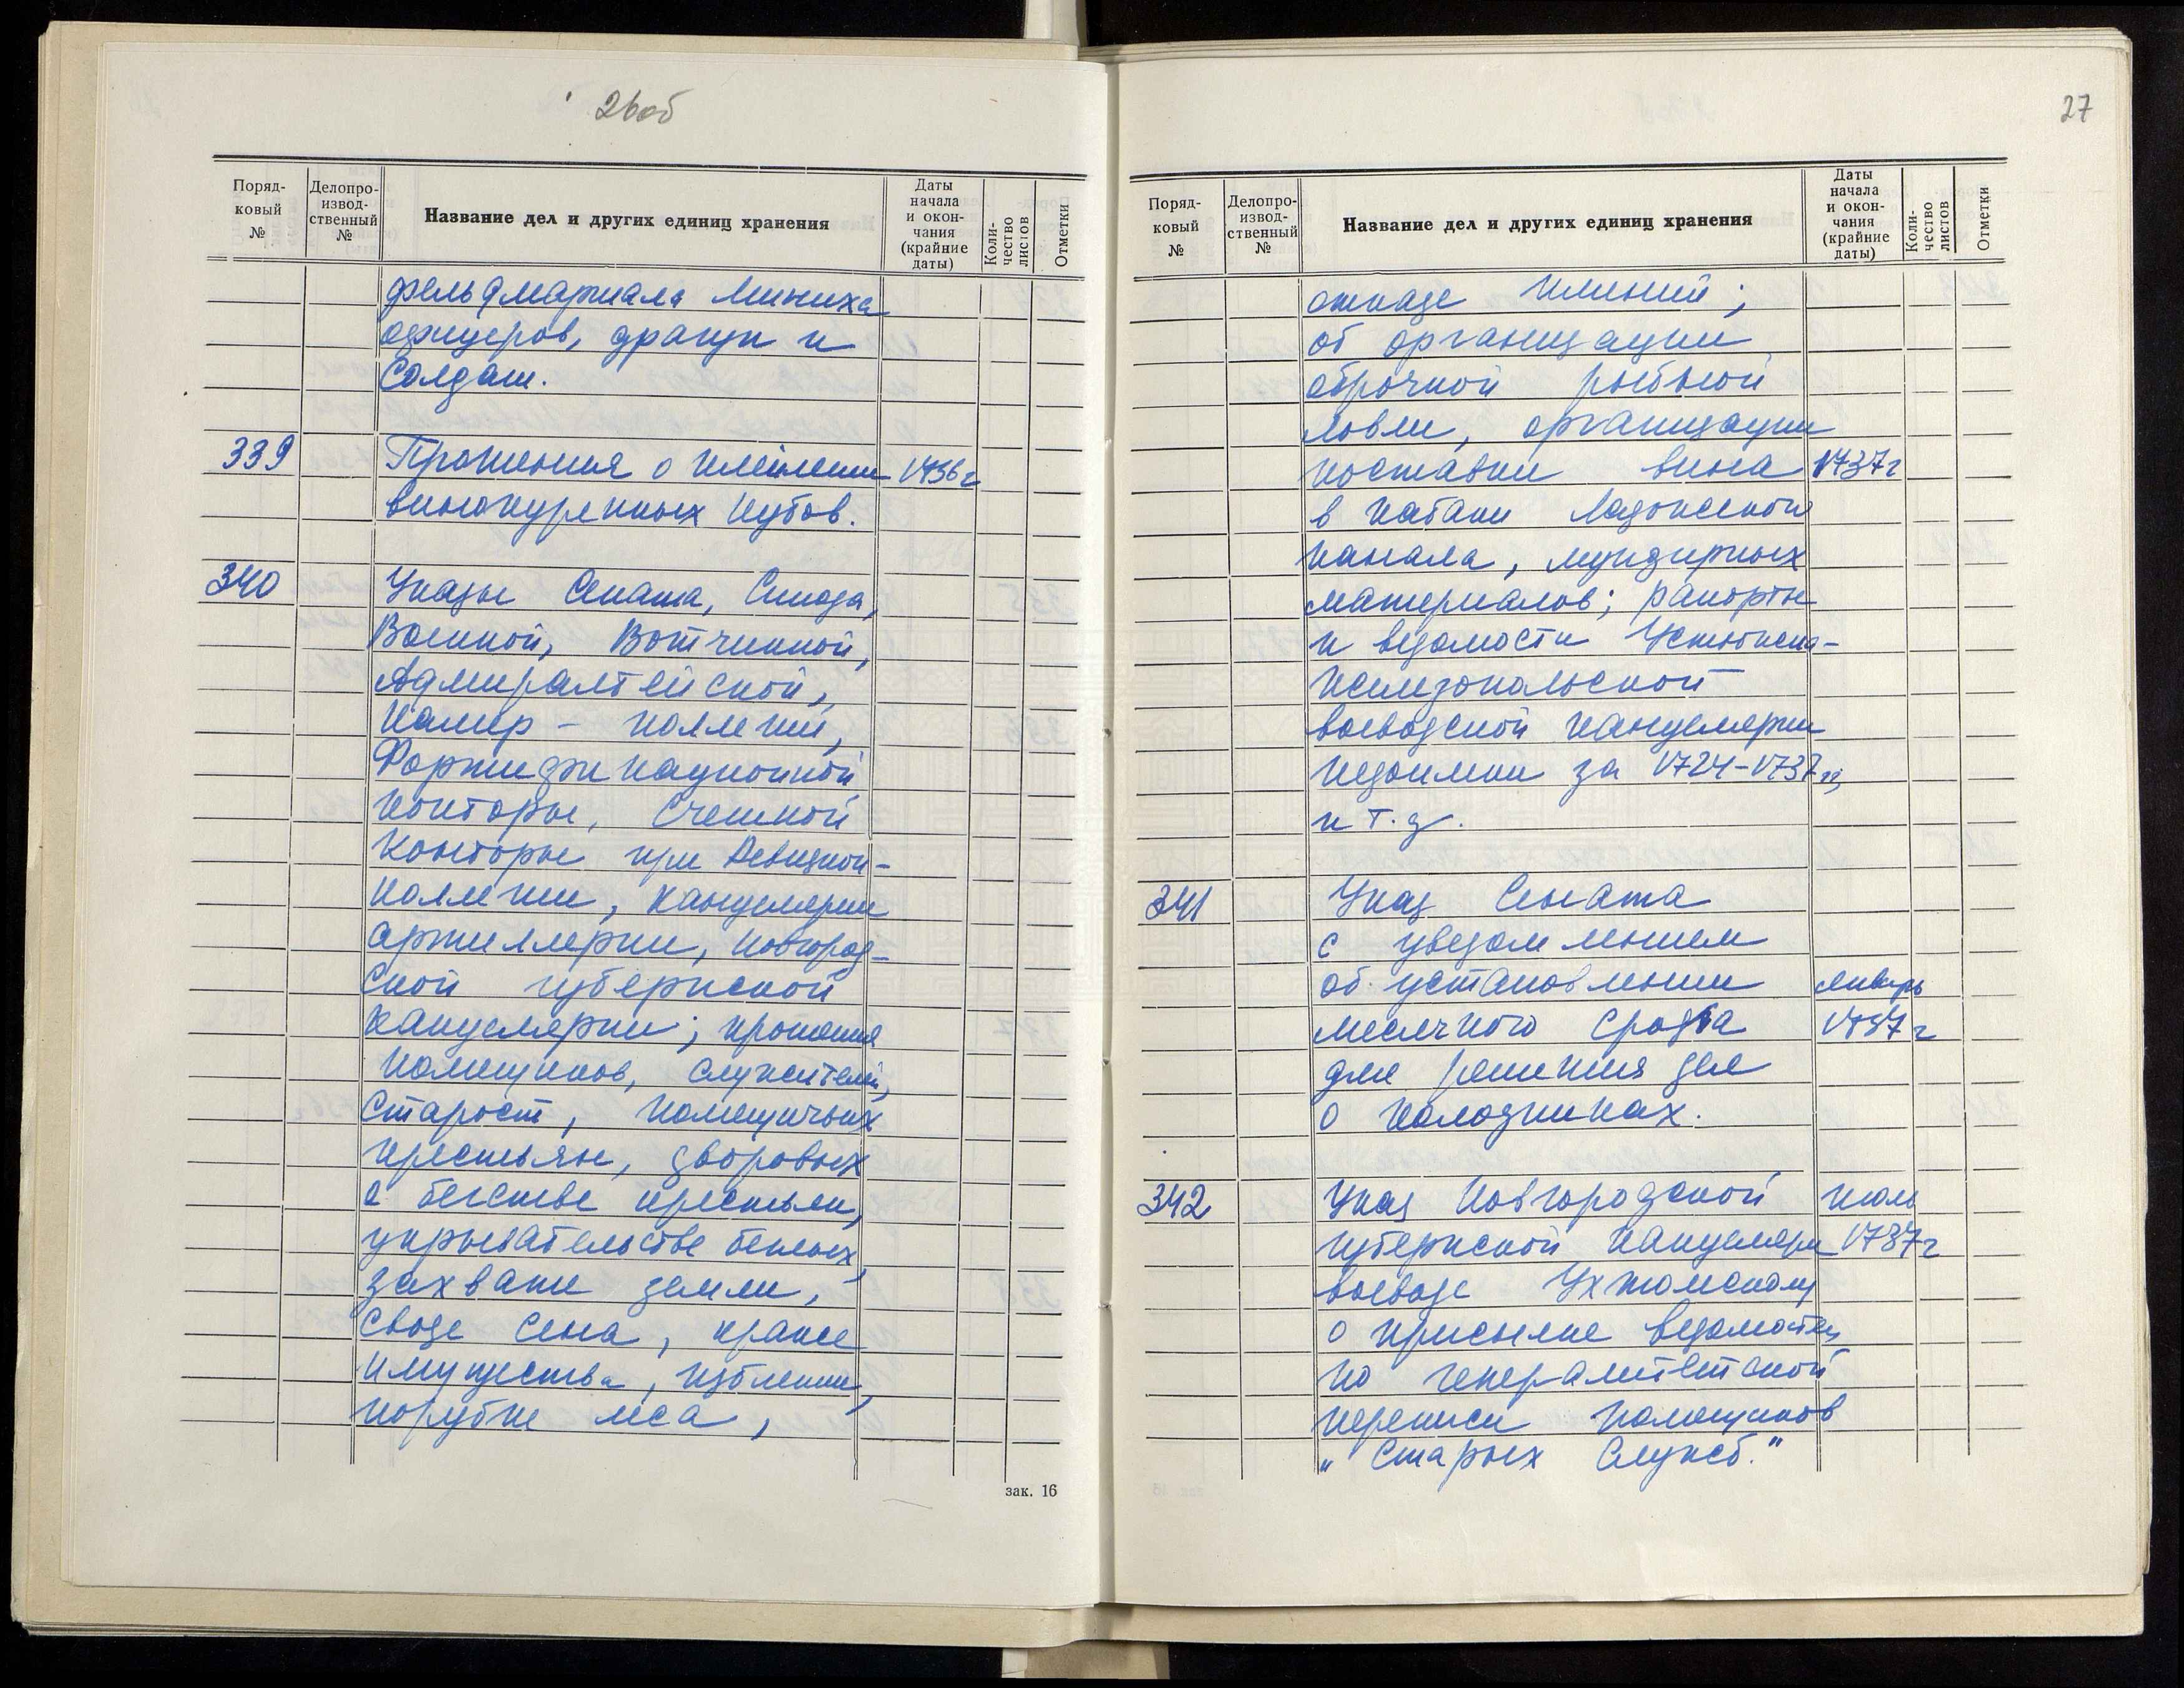 26об
Поряд-
ковый
№
Делопро-
извод-
ственный
№
Название дел и других единиц хранения
Даты
начала
и окон-
чания
(крайние
даты)
Коли-
чество
листов
Отметки
фельдмаршала Миниха
офицеров, драгун и
солдат.
339 Прошения о клеймении 1736 г
винокуренных кубов.
340 Указы Сената, Синода,
Военной, Вотчинной,
Адмиралтейской,
Камер - коллегии,
Фортификационной
конторы, Счетной
конторы при Ревизион-
коллегии, канцелярии
артиллерии, Новгород-
ской губернской
канцелярии; прошения
помещиков, служителей,
старост, помещичьих
крестьян, дворовых
о бегстве крестьян,
укрывательстве беглых,
захвате земли,
своде сена, краже
имущества,
порубке леса,
зак. 16
27
Поряд-
ковый
№
Делопро-
извод-
ственный
№
Название дел и других единиц хранения
Даты
начала
и окон-
чания
(крайние
даты)
Коли-
чество
листов
Отметки
отказе имений;
об организации
оброчной рыбной
ловли, организации
поставки вина 1737 г
в кабаки Ладожского
канала, мундирных
материалов; рапорты
и ведомости Устюжна-
Железопольской
воеводской канцелярии
недоимки за 1724-1737 гг,
и т. д.
341 Указ Сената
с уведомлением
об установлении январь
месячного срока 1737 г
для решения дел
о колодниках.
342 Указ Новгородской июль
губернской канцеляри 1737 г
воеводе Ухтомскому
о присылке ведомостей
по генералитетской
переписи помещиков
„ старых служб."